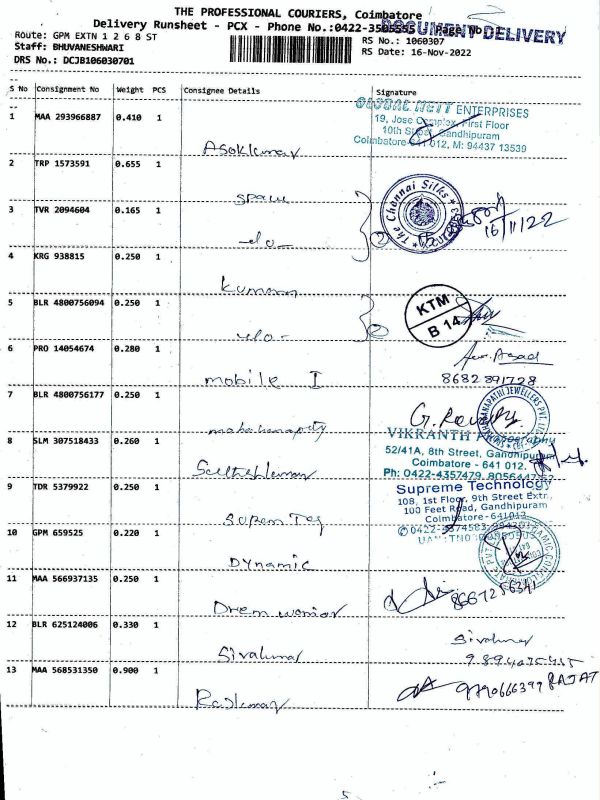 THE PROFESSIONAL COURIERS, Coimbatore
Delivery Runsheet - PCX - Phone No.:0422-3505555 Page No
DOCUMENT DELIVERY
Route: GPM EXTN 1 2 6 8 ST
RS No.: 1060307
Staff: BHUVANESHWARI
RS Date: 16-Nov-2022
DRS No.: DCJB106030701
S No Consignment No Weight PCS Consignee Details Signature
ENTERPRISES
1 MAA 293966887 0.410 1 Asokkumar
19, Jose Complex, First Floor
10th Street, Gandhipuram
Coimbatore-641 012, M: 94437 13539
2 TRP 1573591 0.655 1
The Chennai Silks
3 TVR 2094604 0.165 1 -do-
16/11/22
4 KRG 938815 0.250 1 Kumaran
KTM
B 14
5 BLR 4800756094 0.250 1 -do-
6 PRO 14054674 0.280 1 mobile I
8682891728
7 BLR 4800756177 0.250 1
JEWELLERS PVT
VIKRANTH
8 SLM 307518433 0.260 1
52/41A, 8th Street, Gandhipuram
Coimbatore - 641 012.
Ph: 0422-4357479,
Supreme Technology
9 TDR 5379922 0.250 1
108, 1st Floor, 9th Street Extn,
100 Feet Road, Gandhipuram
Coimbatore-641012
10 GPM 659525 0.220 1 Dynamic
11 MAA 566937135 0.250 1
8667256341
12 BLR 625124006 0.330 1 Sivakumar
Sivakumar
13 MAA 568531350 0.900 1 Rajkumar
9790666399 RAJAT